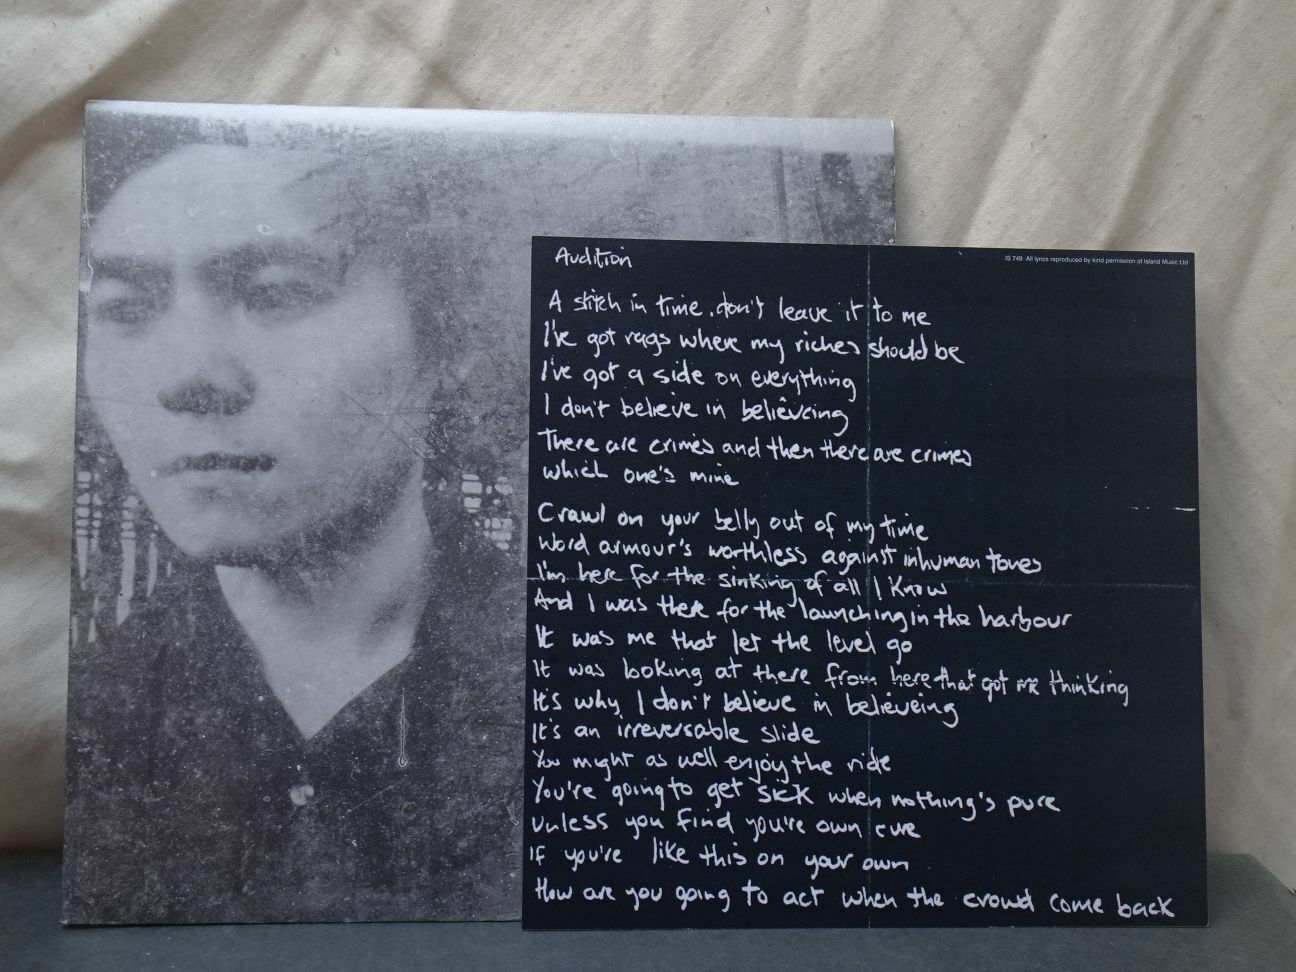 Audition
IS 749 All lyrics reproduced by kind permission of Island Music Ltd
A stitch in time. don't leave it to me
I've got rags where my riches should be
I've got a side on everything
I don't believe in believeing
There are crimes and then there are crimes
which one's mine
Crawl on your belly out of my time
Word armour's worthless against inhuman tones
I'm here for the sinking of all I know
And I was there for the launching in the harbour
It was me that let the level go
It was looking at there from here that got me thinking
It's why I don't believe in believeing
It's an irreversable slide
You might as well enjoy the ride
You're going to get sick when nothing's pure
Unless you find you're own cure
If you're like this on your own
How are you going to act when the crowd come back